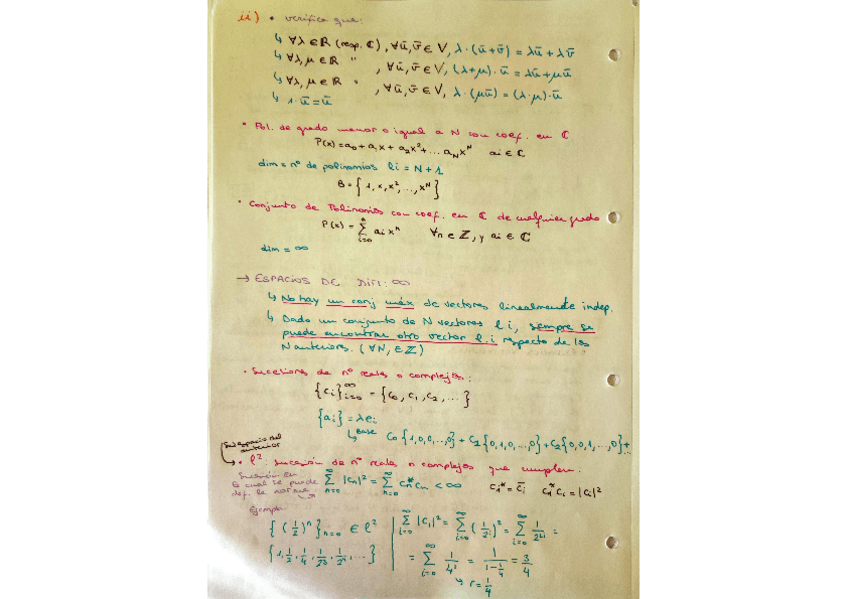 ii) • verifica que:
↳ ∀λ ∈ ℝ (resp. ℂ), ∀ū, v̄ ∈ V, λ·(ū+v̄) = λū + λv̄
↳ ∀λ, μ ∈ ℝ " , ∀ū, v̄ ∈ V, (λ+μ)·ū = λū + μū
↳ ∀λ, μ ∈ ℝ " , ∀ū, v̄ ∈ V, λ·(μū) = (λ·μ)·ū
↳ 1·ū = ū
• Pol. de grado menor o igual a N con coef. en ℂ
P(x) = a₀ + a₁x + a₂x² + ... a_N x^N ai ∈ ℂ
dim = nº de polinomios l.i = N+1
B = {1, x, x², ..., x^N}
• Conjunto de Polinomios con coef. en ℂ de cualquier grado
P(x) = Σ_{i=0}^{n} ai xⁿ ∀n ∈ ℤ, y ai ∈ ℂ
dim = ∞
→ ESPACIOS DE DIM: ∞
↳ No hay un conj máx de vectores linealmente indep.
↳ Dado un conjunto de N vectores l.i, sempre se
puede encontrar otro vector l.i respecto de los
N anteriores. (∀N, ∈ ℤ)
• Sucesiones de nº reales o complejos:
{ci}_{i=0}^{∞} = {c₀, c₁, c₂, ...}
{ai} = λei
↳ base c₀{1,0,0,...,0} + c₂{0,1,0,...,0} + c₂{0,0,1,...,0} +
Subespacio del
anterior
→ • l²: sucesión de nº reales o complejos que cumplen:
Sucesión en
la cual se puede
def. la norma
Σ_{n=0}^{∞} |cn|² = Σ_{n=0}^{∞} cn* cn < ∞ c₁* = c̄i c₁* ci = |ci|²
Ejemplo
{(1/2)ⁿ}_{n=0} ∈ l²
{1, 1/2, 1/4, 1/2³, 1/2ⁿ, ...}
Σ_{i=0}^{∞} |Ci|² = Σ_{i=0}^{∞} (1/2^i)² = Σ_{i=0}^{∞} 1/2^{2i} =
= Σ_{i=0}^{∞} 1/4^i = 1/(1-1/4) = 3/4
↳ r = 1/4